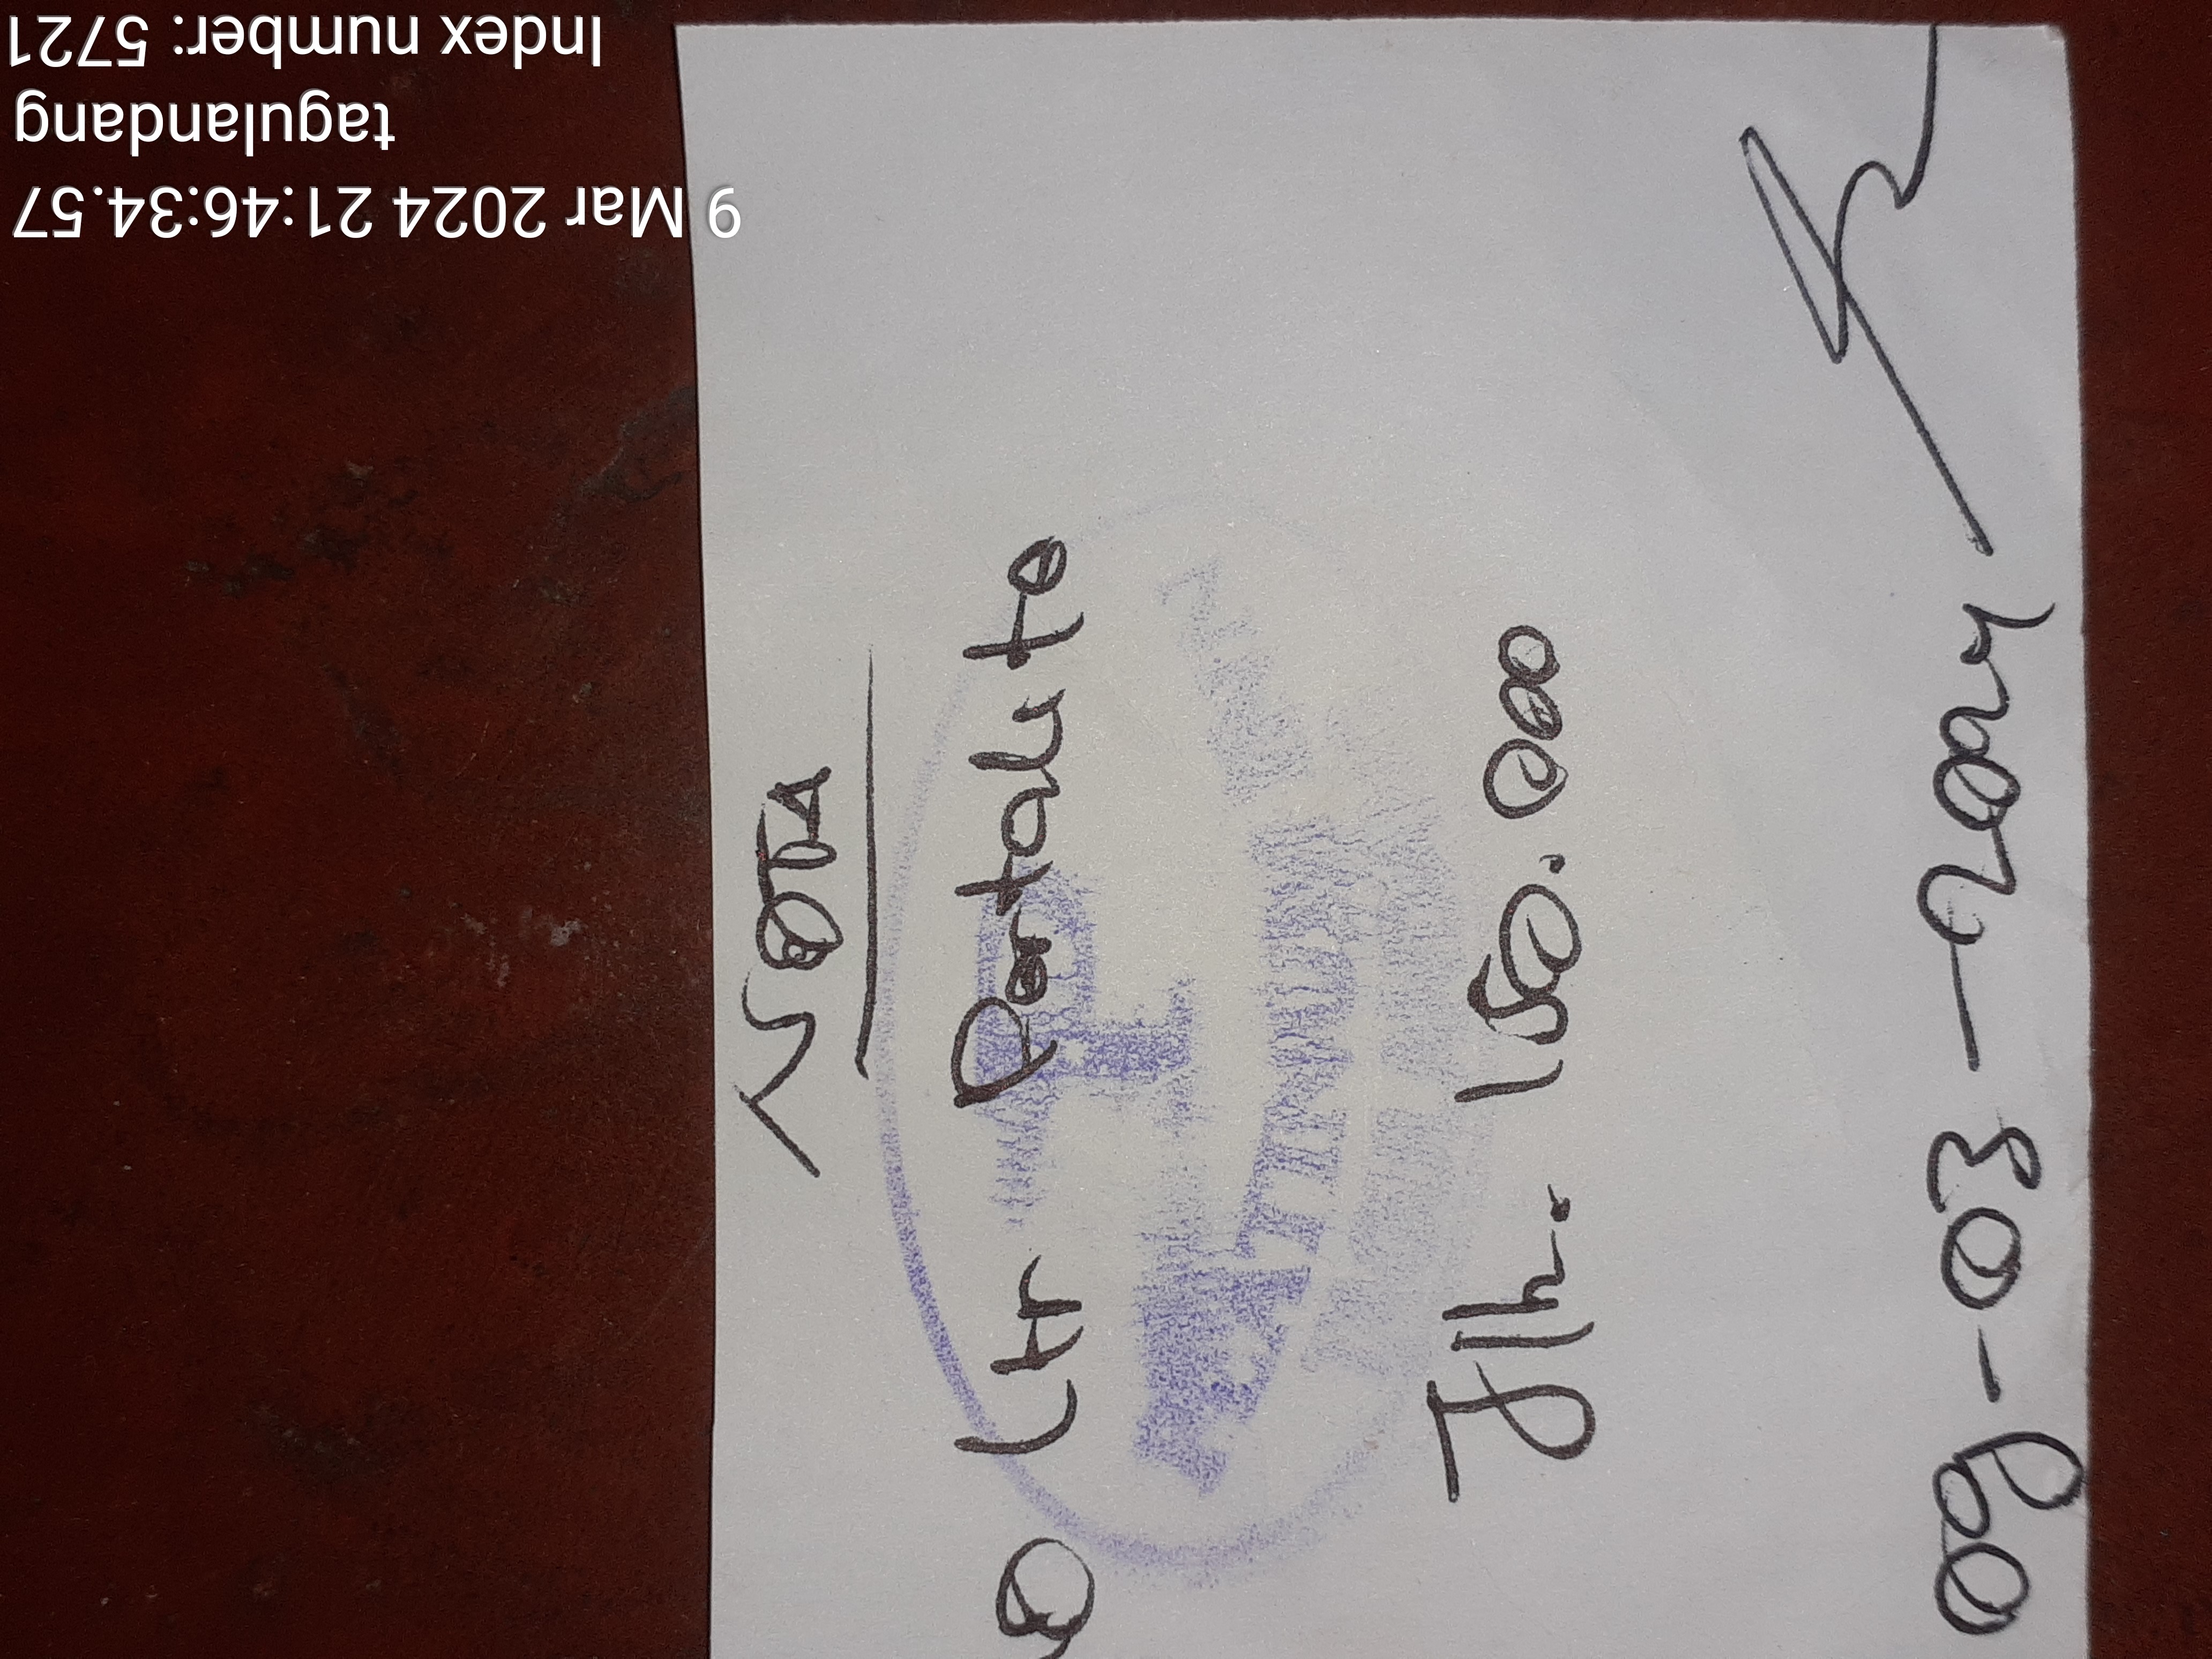 NOTA
Ltr Pertalite
Jlh. 150.000
09-03-2024
9 Mar 2024 21:46:34.57
tagulandang
Index number: 5721